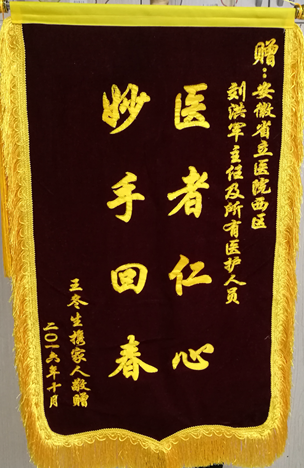 赠：安徽省立医院西区
刘洪军主任及所有医护人员
医者仁心
妙手回春
王冬生携家人敬赠
二〇一六年十月